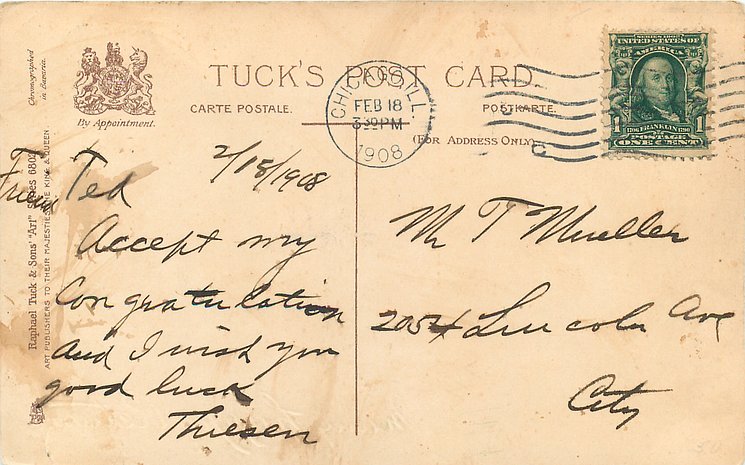 Chromographed
in Bavaria.
By Appointment.
TUCK'S POST CARD.
CARTE POSTALE.
POSTKARTE.
(FOR ADDRESS ONLY)
CHICAGO, ILL.
FEB 18
3 30 PM
1908
SERIES 1902
UNITED STATES OF
AMERICA
1706 FRANKLIN 1790
1 1
ONE CENT
Raphael Tuck & Sons' "Art" Series 6802
ART PUBLISHERS TO THEIR MAJESTIES THE KING & QUEEN
2/18/1908
Friend Ted
Accept my
Congratulation
And I wish you
good luck
Thiesen
Mr T Mueller
2054 Lincoln Ave
City